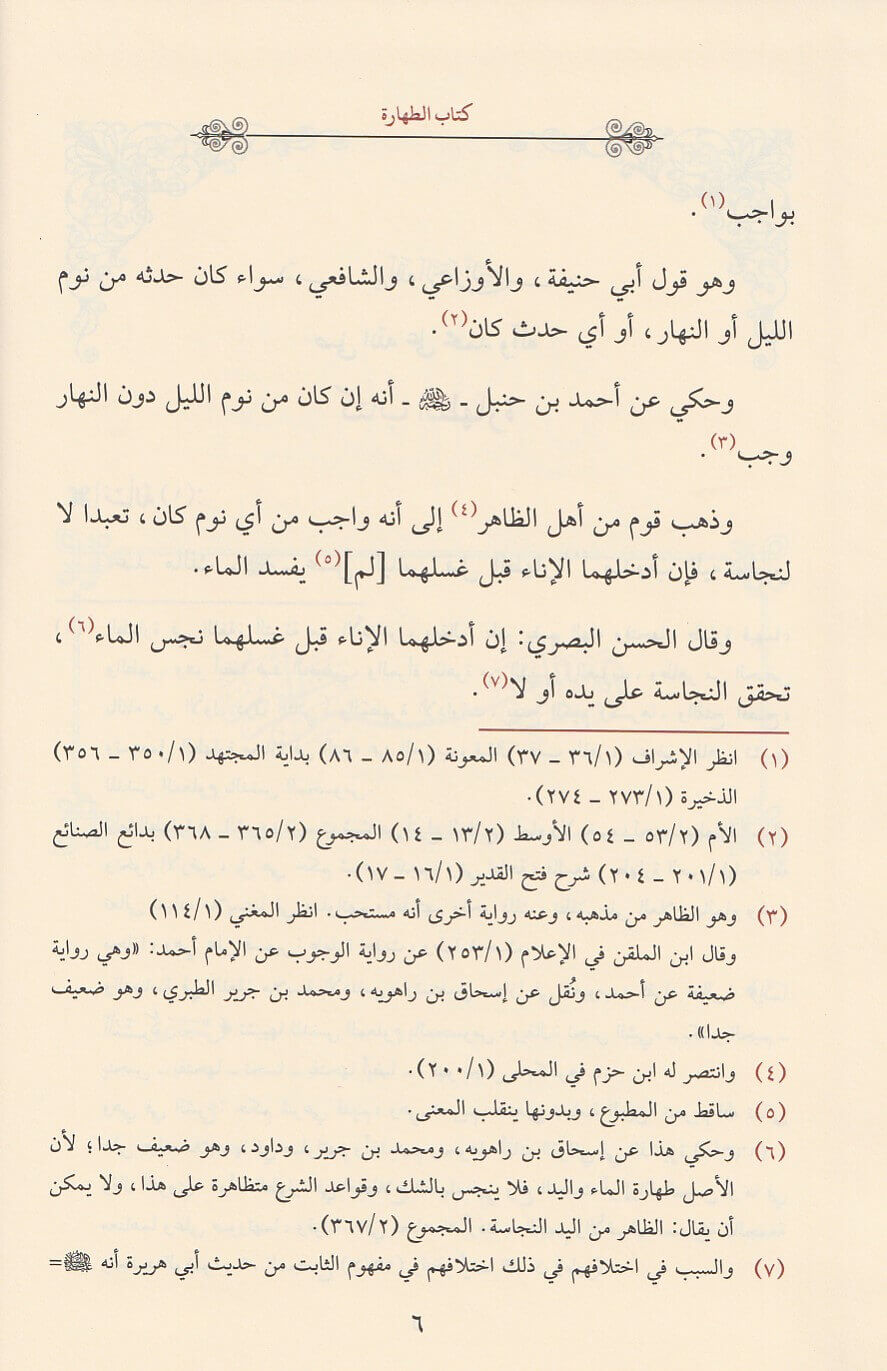 كتاب الطهارة
بواجب(١).
وهو قول أبي حنيفة، والأوزاعي، والشافعي، سواء كان حدثه من نوم
الليل أو النهار، أو أي حدث كان(٢).
وحكي عن أحمد بن حنبل ـ رحمه الله ـ أنه إن كان من نوم الليل دون النهار
وجب(٣).
وذهب قوم من أهل الظاهر(٤) إلى أنه واجب من أي نوم كان، تعبدا لا
لنجاسة، فإن أدخلهما الإناء قبل غسلهما [لم](٥) يفسد الماء.
وقال الحسن البصري: إن أدخلهما الإناء قبل غسلهما نجس الماء(٦)،
تحقق النجاسة على يده أو لا(٧).
(١) انظر الإشراف (٣٦/١ ـ ٣٧) المعونة (٨٥/١ ـ ٨٦) بداية المجتهد (٣٥٠/١ ـ ٣٥٦)
الذخيرة (٢٧٣/١ ـ ٢٧٤).
(٢) الأم (٥٣/٢ ـ ٥٤) الأوسط (١٣/٢ ـ ١٤) المجموع (٣٦٥/٢ ـ ٣٦٨) بدائع الصنائع
(٢٠١/١ ـ ٢٠٤) شرح فتح القدير (١٦/١ ـ ١٧).
(٣) وهو الظاهر من مذهبه، وعنه رواية أخرى أنه مستحب. انظر المغني (١١٤/١)
وقال ابن الملقن في الإعلام (٢٥٣/١) عن رواية الوجوب عن الإمام أحمد: «وهي رواية
ضعيفة عن أحمد، ونُقل عن إسحاق بن راهويه، ومحمد بن جرير الطبري، وهو ضعيف
جدا».
(٤) وانتصر له ابن حزم في المحلى (٢٠٠/١).
(٥) ساقط من المطبوع، وبدونها ينقلب المعنى.
(٦) وحكي هذا عن إسحاق بن راهويه، ومحمد بن جرير، وداود، وهو ضعيف جدا؛ لأن
الأصل طهارة الماء واليد، فلا ينجس بالشك، وقواعد الشرع متظاهرة على هذا، ولا يمكن
أن يقال: الظاهر من اليد النجاسة. المجموع (٣٦٧/٢).
(٧) والسبب في اختلافهم في ذلك اختلافهم في مفهوم الثابت من حديث أبي هريرة أنه ﷺ=
٦